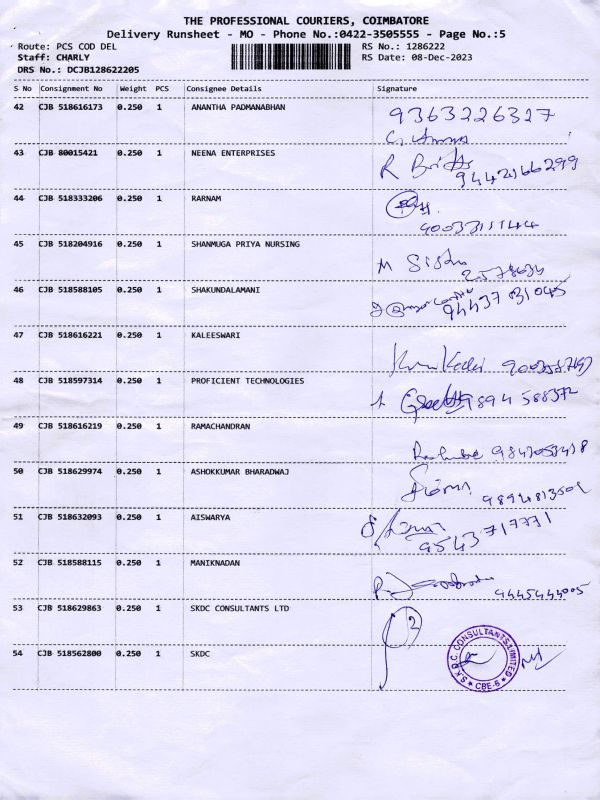 THE PROFESSIONAL COURIERS, COIMBATORE
Delivery Runsheet - MO - Phone No.:0422-3505555 - Page No.:5
Route: PCS COD DEL RS No.: 1286222
Staff: CHARLY RS Date: 08-Dec-2023
DRS No.: DCJB128622205
S No Consignment No Weight PCS Consignee Details Signature
42 CJB 518616173 0.250 1 ANANTHA PADMANABHAN 9363226327
43 CJB 80015421 0.250 1 NEENA ENTERPRISES
44 CJB 518333206 0.250 1 RARNAM
45 CJB 518204916 0.250 1 SHANMUGA PRIYA NURSING
46 CJB 518588105 0.250 1 SHAKUNDALAMANI 94437 031045
47 CJB 518616221 0.250 1 KALEESWARI
48 CJB 518597314 0.250 1 PROFICIENT TECHNOLOGIES 9894 588372
49 CJB 518616219 0.250 1 RAMACHANDRAN
50 CJB 518629974 0.250 1 ASHOKKUMAR BHARADWAJ
51 CJB 518632093 0.250 1 AISWARYA 9543717771
52 CJB 518588115 0.250 1 MANIKNADAN 9445444005
53 CJB 518629863 0.250 1 SKDC CONSULTANTS LTD
54 CJB 518562800 0.250 1 SKDC
S.K.D.C. CONSULTANTS LIMITED
CBE-6